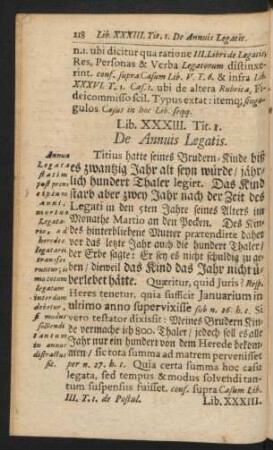 218 Lib. XXXIII. Tit. 1. De Annuis Legatis.
n.1. ubi dicitur qua ratione III. Libri de Legatis
Res, Personas & Verba Legatorum distinxerint.
conf. supra Casum Lib. V. T. 6. & infra Lib.
XXXVI. T. 1. Cas. 1. ubi de altera Rubrica, Fideicommisso
scil. Typus extat: itemq; singulos
Casus in hoc Lib. seqq.
Lib. XXXIII. Tit. 1.
De Annuis Legatis.
Annua
Legata
statim
post principium
Anni,
mortuo
Legatario, ad
heredes
legatarii
transferuntur;
summa tamen
legatum
interdum
debetur,
si modus
solvendi
tantum
in annos
distractus
sit.
Titius hatte seines Brudern-Kinde biß
es zwantzig Jahr alt seyn würde / jährlich
hundert Thaler legirt. Das Kind
starb aber zwey Jahr nach der Zeit des
Legati in den 5ten Jahre seines Alters im
Monathe Martio an den Pocken. Des Kindes
hinterbliebene Mutter prætendirte daher
vor das letzte Jahr auch die hundert Thaler /
der Erbe sagte: Er sey es nicht schuldig zu geben
/ dieweil das Kind das Jahr nicht überlebet
hätte. Quæritur, quid Juris? Resp.
Heres tenetur, quia sufficit Januarium in
ultimo anno supervixisse sub n. 26. b. 1. Si
vero testator dixisset: Meines Brudern Kinde
vermache ich 800. Thaler / jedoch soll es alle
Jahr nur ein hundert von dem Herede bekommen
/ sic tota summa ad matrem pervenisset
per n. 27. b. 1. Quia certa summa hoc casu
legata, sed tempus & modus solvendi tantum
suspensus fuisset. conf. supra Casum Lib.
III. T. 1. de Postul.
Lib. XXXIII.